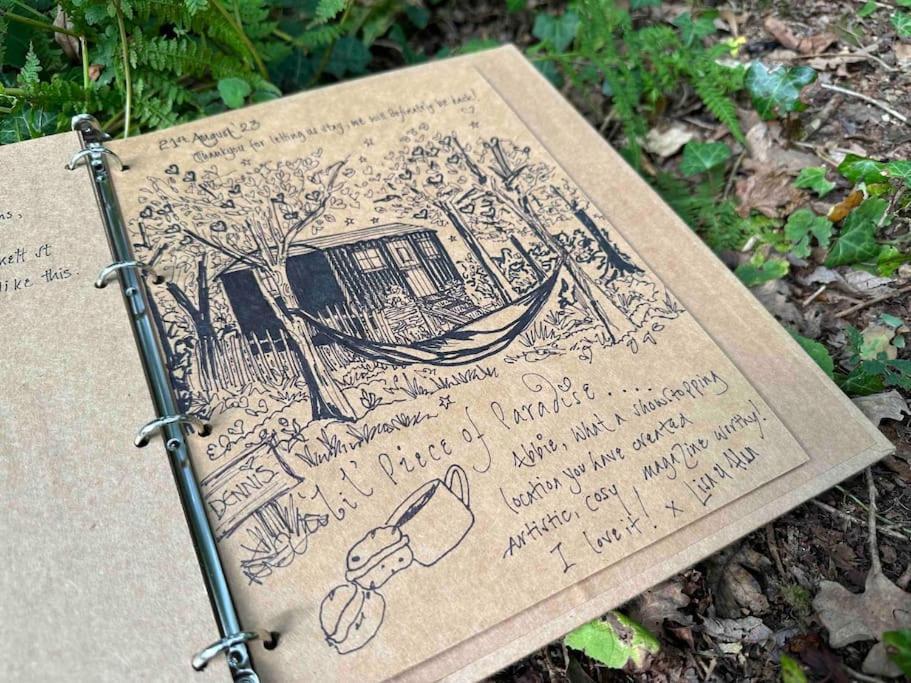 ns,
kett st
like this.
21st August 23
Thankyou for letting us stay, we will definately be back!
DENNIS
'Lil' Piece of Paradise ....
Abbie, what a showstopping
location you have created
Artistic, cosy magazine worthy!
I love it! x